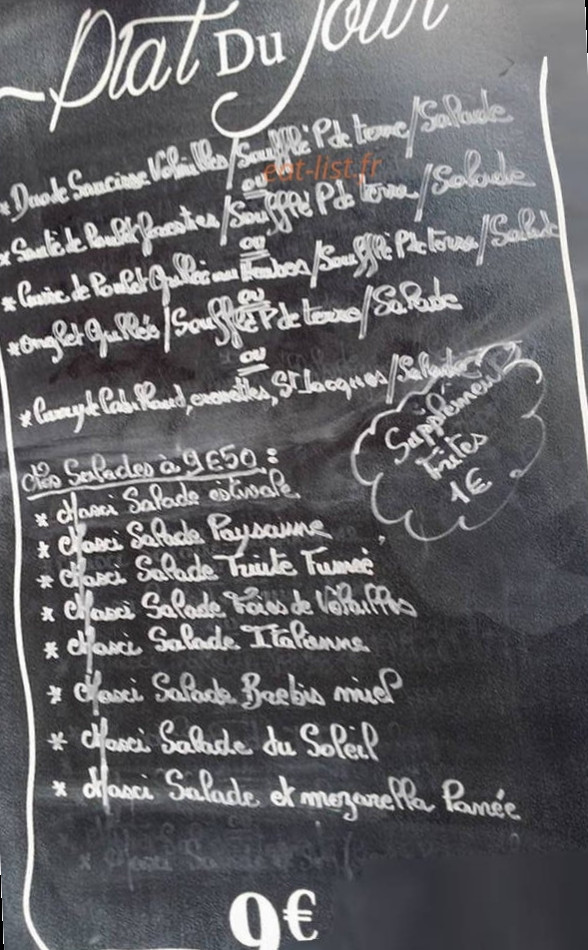 Plat Du Jour
* Duo de Saucisse Volailles/Soufflé P de terre/Salade
ou
eat-list.fr
* Sauté de Poulet forestier/Soufflé P de terre/Salade
ou
* Cuisse de Poulet Grillée aux Herbes/Soufflé P de terre/Salade
ou
* Onglet Grillés/Soufflé P de terre/Salade
ou
* Curry de Cabillaud, crevettes, St Jacques/Salade
Supplément
Frites
1€
Les Salades à 9€50 :
* Maxi Salade estivale
* Maxi Salade Paysanne
* Maxi Salade Truite Fumée
* Maxi Salade Foies de Volailles
* Maxi Salade Italienne
* Maxi Salade Brebis miel
* Maxi Salade du Soleil
* Maxi Salade et mozarella Panée
* Maxi Salade
9€